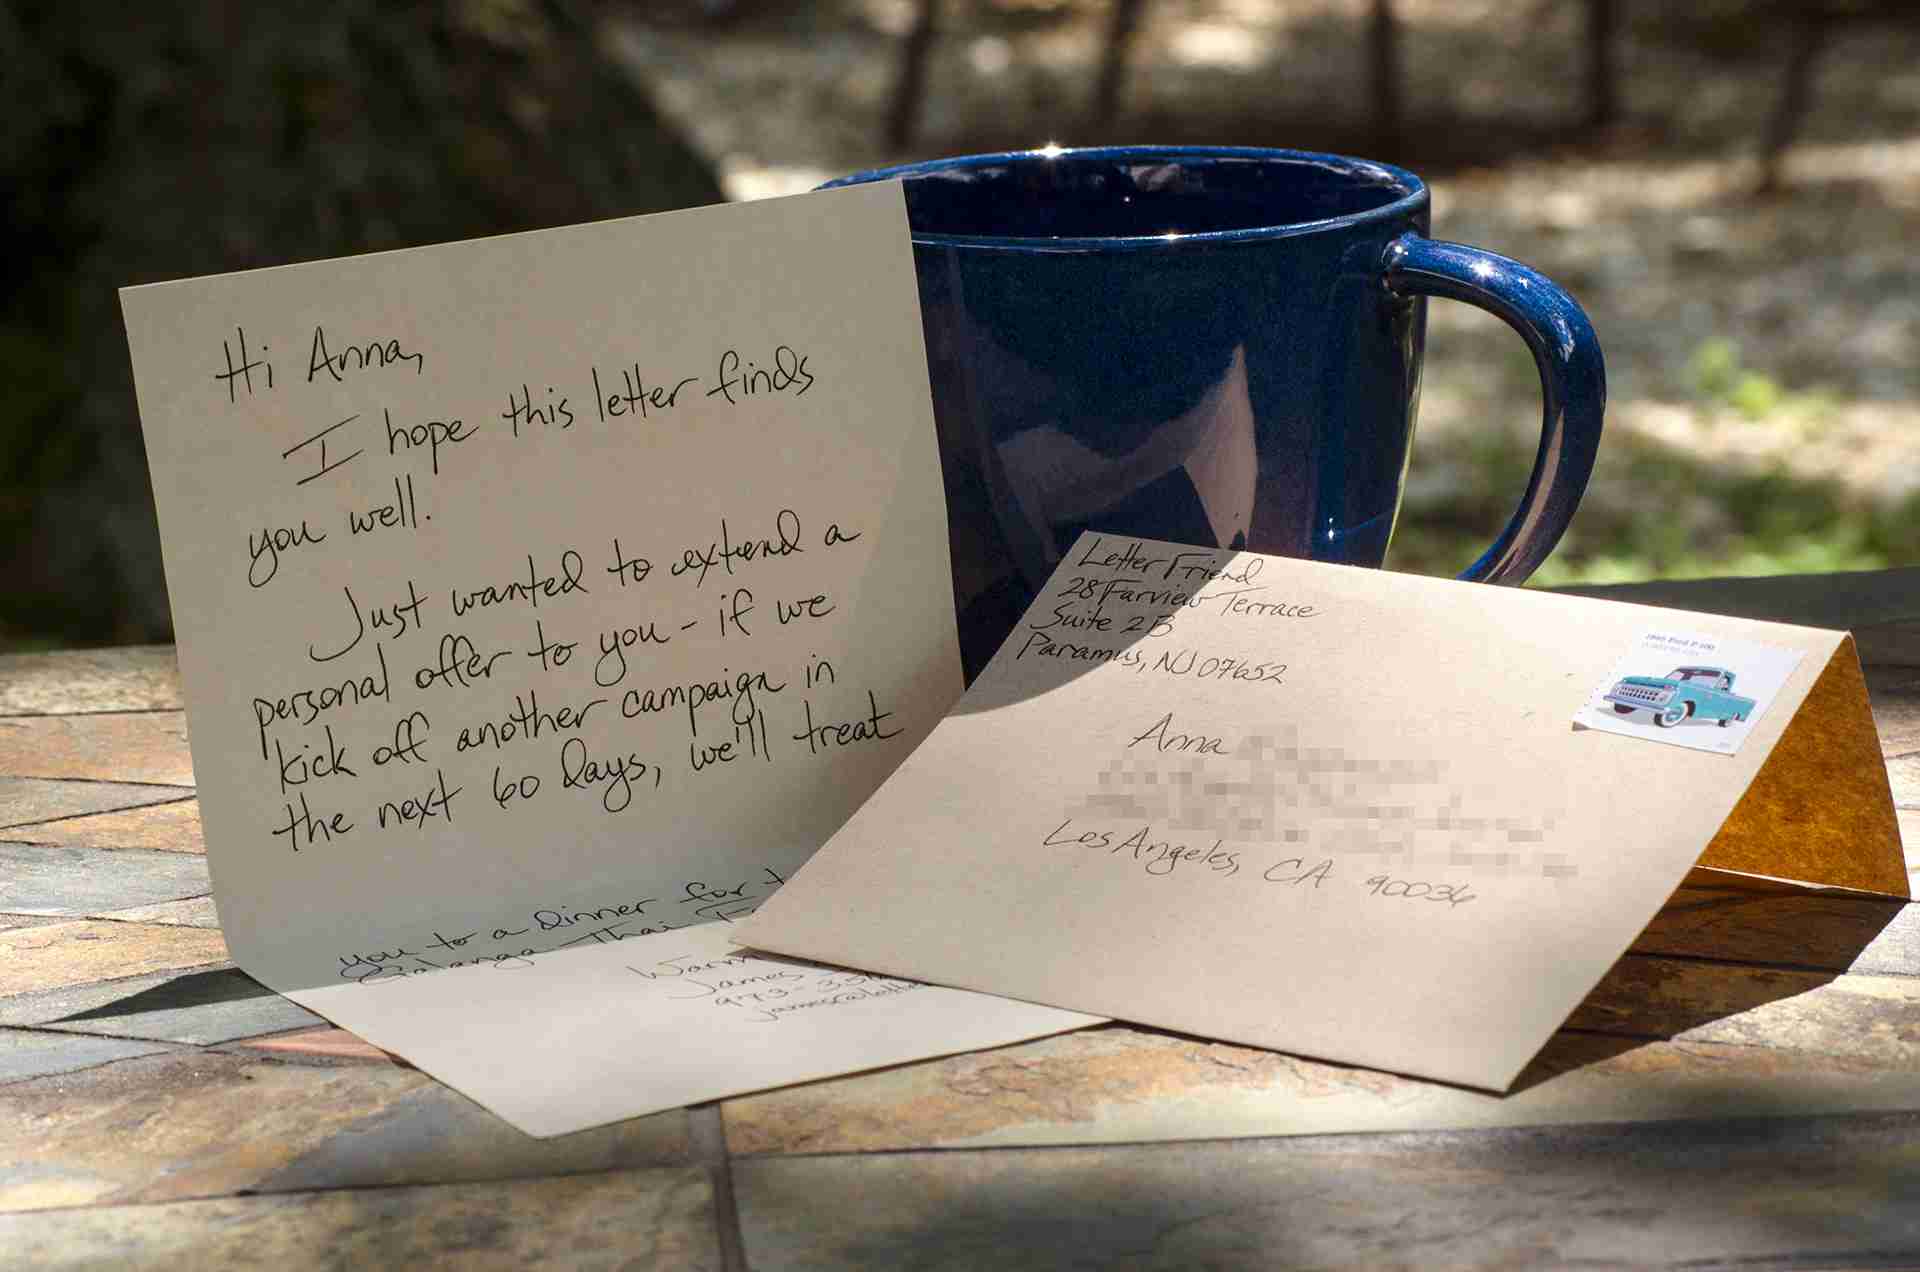 Hi Anna,
I hope this letter finds
you well.
Just wanted to extend a
personal offer to you - if we
kick off another campaign in
the next 60 days, we'll treat
you to a dinner for
Thai
Warm
James
973-
james@
Letter Friend
28 Farview Terrace
Suite 2B
Paramus, NJ 07652
Anna
Los Angeles, CA 90036